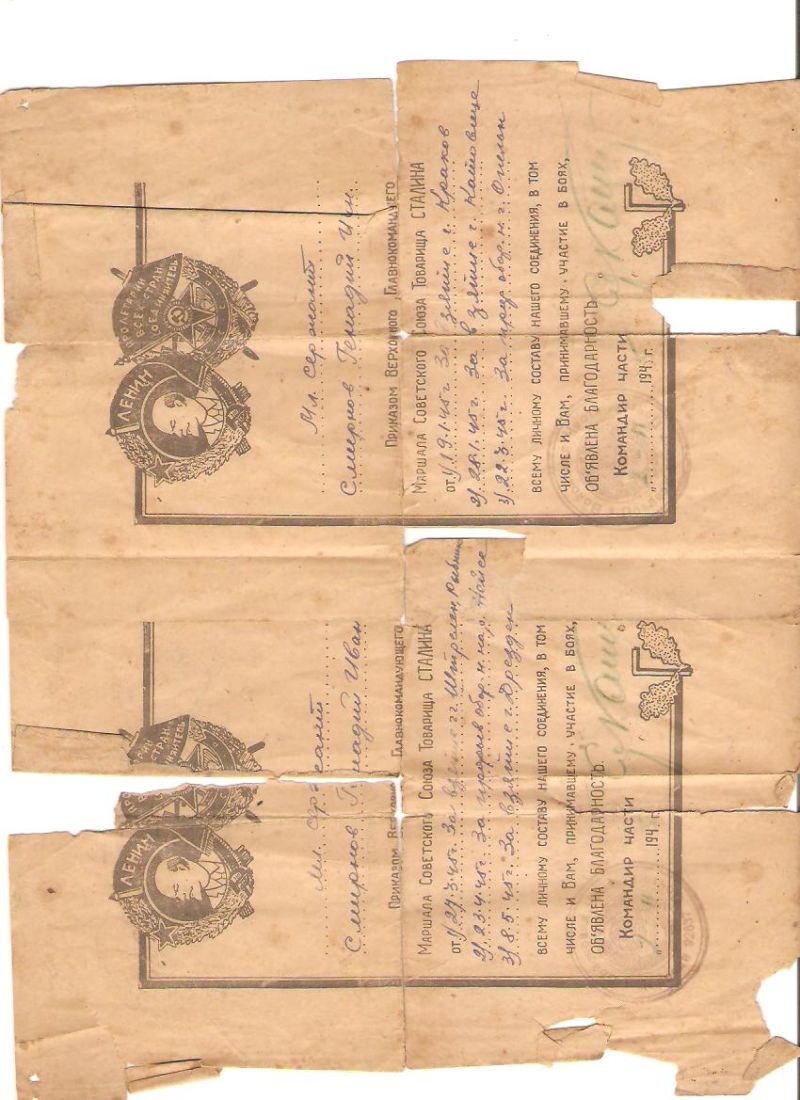 ПРОЛЕТАРИИ
ВСЕХ СТРАН
ЛЕНИН
Мл. сержант
Смирнов Генадий Ив
ПРИКАЗОМ ВЕРХОВНОГО ГЛАВНОКОМАНДУЮЩЕГО
МАРШАЛА СОВЕТСКОГО СОЮЗА ТОВАРИЩА СТАЛИНА
от 1/ 19.1.45г. За взятие г. Краков
2/ 28.1.45г. За взятие г. Катовице
3/ 22.3.45г. За прор. обор. г. Опельн
ВСЕМУ ЛИЧНОМУ СОСТАВУ НАШЕГО СОЕДИНЕНИЯ, В ТОМ
ЧИСЛЕ И ВАМ, ПРИНИМАВШЕМУ УЧАСТИЕ В БОЯХ,
ОБ'ЯВЛЕНА БЛАГОДАРНОСТЬ
КОМАНДИР ЧАСТИ
194 г.
ЛЕНИН
Мл. сержант
Смирнов Генадий Иван
ПРИКАЗОМ ГЛАВНОКОМАНДУЮЩЕГО
МАРШАЛА СОВЕТСКОГО СОЮЗА ТОВАРИЩА СТАЛИНА
от 1/ 27.3.45г. За взятие гг. Штрелен, Рыбник
2/ 23.4.45г. За прорыв обор. н. на р. Нейсе
3/ 8.5.45г. За взятие г. Дрезден
ВСЕМУ ЛИЧНОМУ СОСТАВУ НАШЕГО СОЕДИНЕНИЯ, В ТОМ
ЧИСЛЕ И ВАМ, ПРИНИМАВШЕМУ УЧАСТИЕ В БОЯХ,
ОБ'ЯВЛЕНА БЛАГОДАРНОСТЬ.
КОМАНДИР ЧАСТИ
194 г.